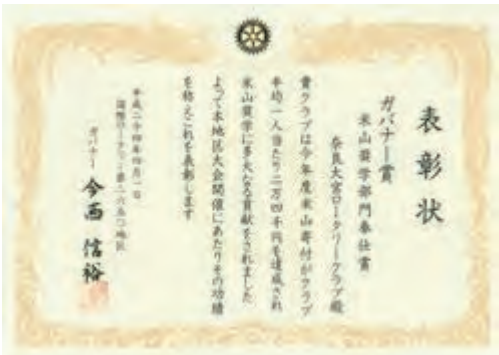 表彰状
ガバナー賞
米山奨学部門奉仕賞
奈良大宮ロータリークラブ殿
貴クラブは今年度米山寄付がクラブ
平均一人当たり二万四千円を達成され
米山奨学に多大なる貢献をされました
よって本地区大会開催にあたりその功績
を称えこれを表彰します
平成二十四年四月一日
国際ロータリー第二六五〇地区
ガバナー 今西信裕